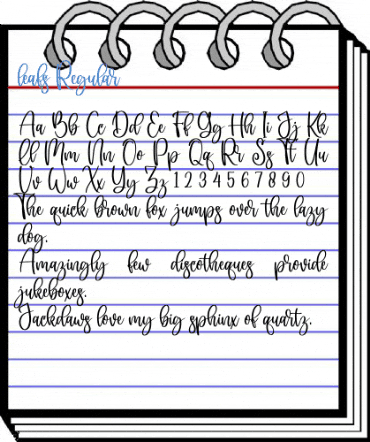 leafs Regular
Aa Bb Cc Dd Ee Ff Gg Hh Ii Jj Kk
Ll Mm Nn Oo Pp Qq Rr Ss Tt Uu
Vv Ww Xx Yy Zz 1 2 3 4 5 6 7 8 9 0
The quick brown fox jumps over the lazy
dog.
Amazingly few discotheques provide
jukeboxes.
Jackdaws love my big sphinx of quartz.